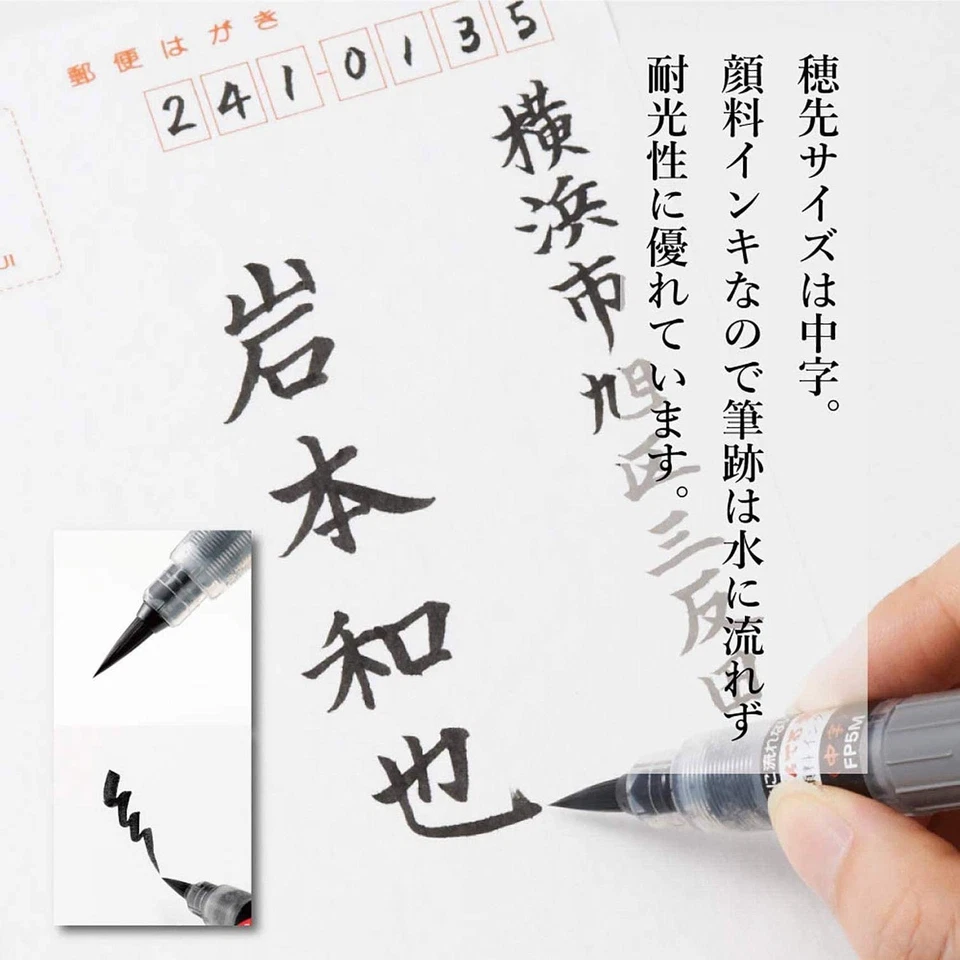 穂先サイズは中字。
顔料インキなので筆跡は水に流れず
耐光性に優れています。
郵便はがき
241-0135
横浜市旭区三反田
岩本和也
中字
FP5M